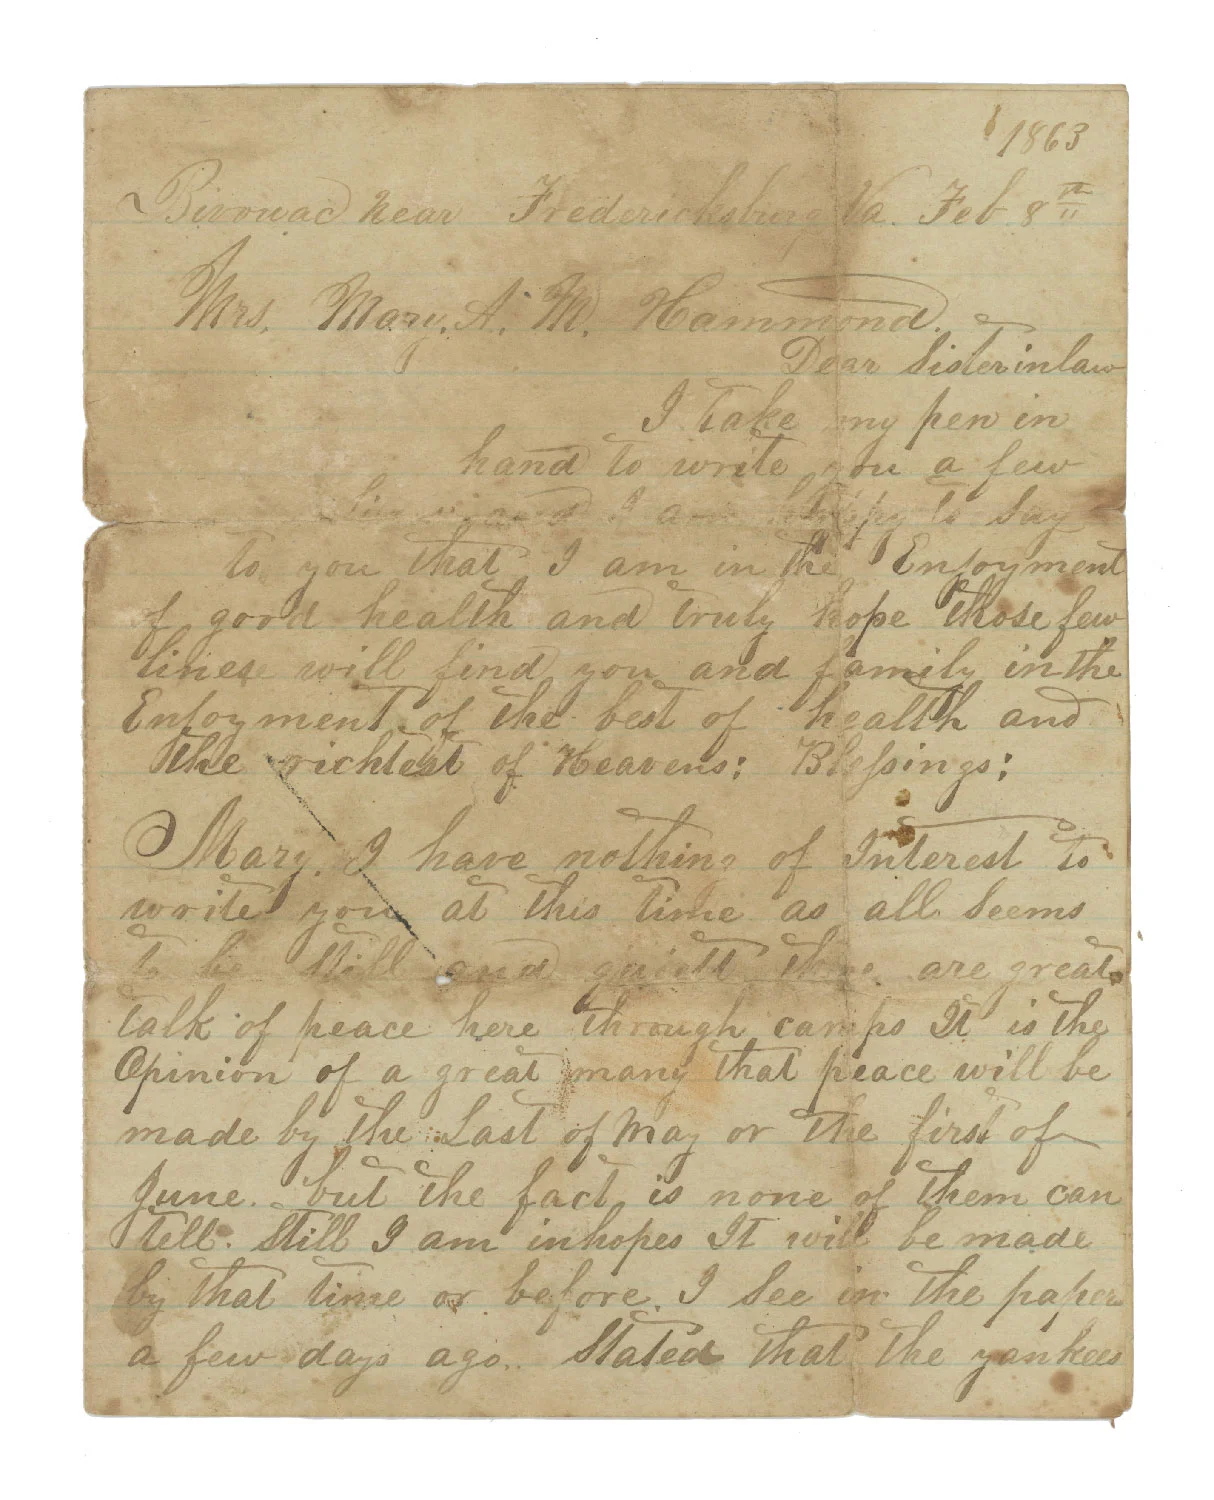 1863
Bivouac near Fredericksburg Va. Feb 8th
Mrs. Mary. A. M. Hammond.
Dear Sister inlaw
I take my pen in
hand to write you a few
lines and I am happy to say
to you that I am in the Enjoyment
of good health and truly hope those few
lines will find you and family in the
Enjoyment of the best of health and
the richest of Heavens; Blessings;
Mary. I have nothing of Interest to
write you at this time as all Seems
to be Still and quiett there are great
talk of peace here through camps It is the
Opinion of a great many that peace will be
made by the Last of May or the first of
June. but the fact is none of them can
tell. Still I am inhopes It will be made
by that time or before. I See in the paper
a few days ago. Stated that the yankees